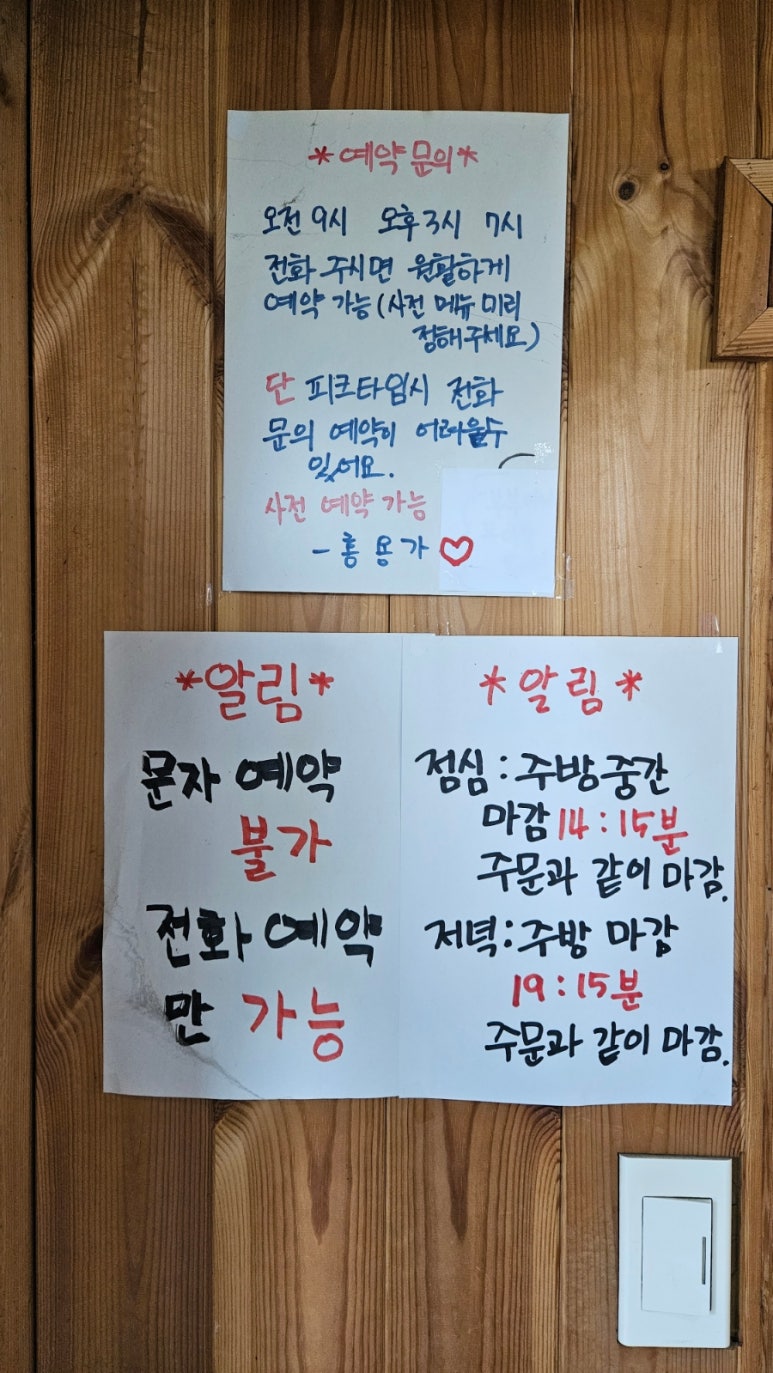 *예약 문의*
오전 9시 오후 3시 7시
전화 주시면 원활하게
예약 가능(사전 메뉴 미리
정해주세요)
단 피크타임시 전화
문의 예약이 어려울수
있어요.
사전 예약 가능
- 홍용가♡
*알림*
문자 예약
불가
전화 예약
만 가능
*알림*
점심 : 주방중간
마감 14 : 15분
주문과 같이 마감.
저녁 : 주방 마감
19 : 15분
주문과 같이 마감.